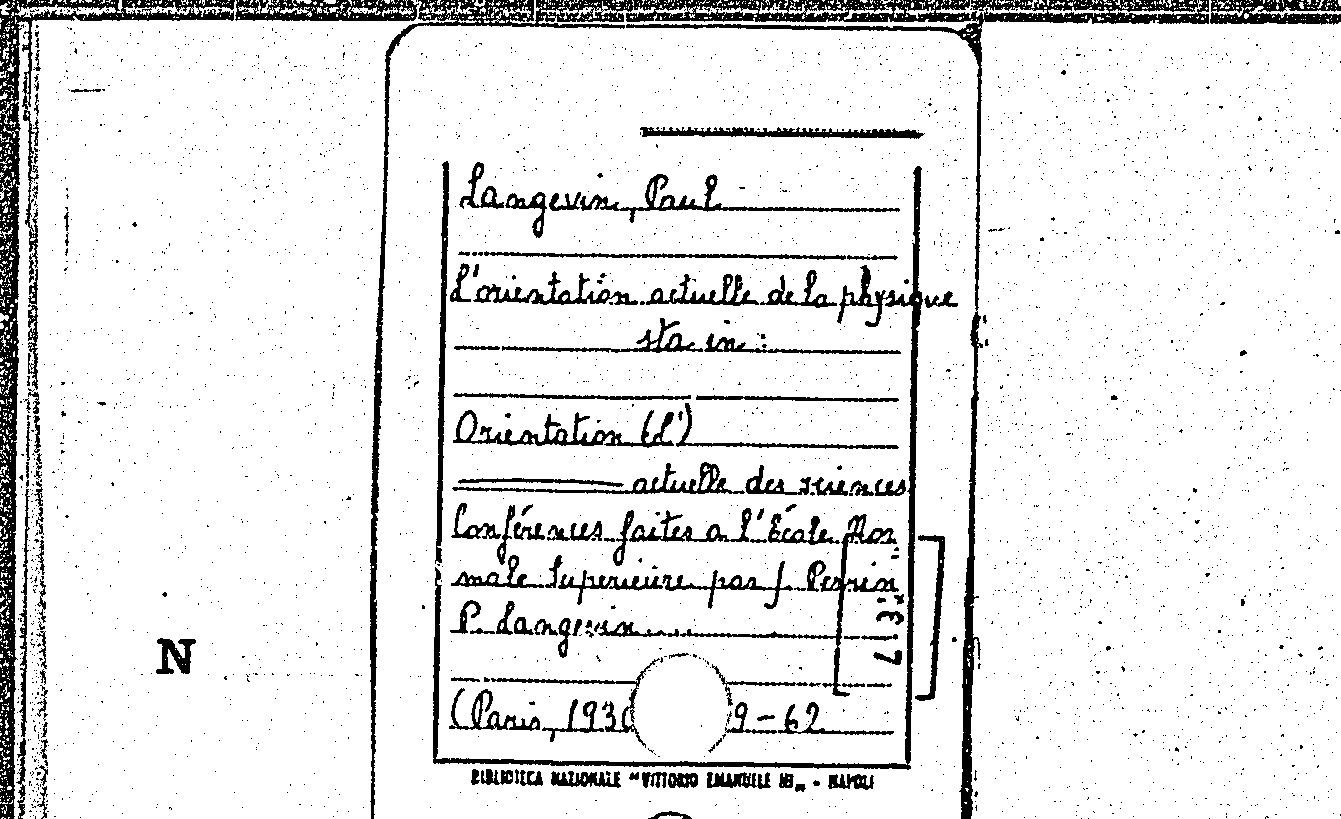 Langevin, Paul
L'orientation actuelle de la physique
sta in :
Orientation (L')
actuelle des sciences
Conférences faites a l'École Nor
male Superieure par J. Perrin
P. Langevin....
(Paris, 1930 9-62
BIBLIOTECA NAZIONALE "VITTORIO EMANUELE III„ - NAPOLI
N